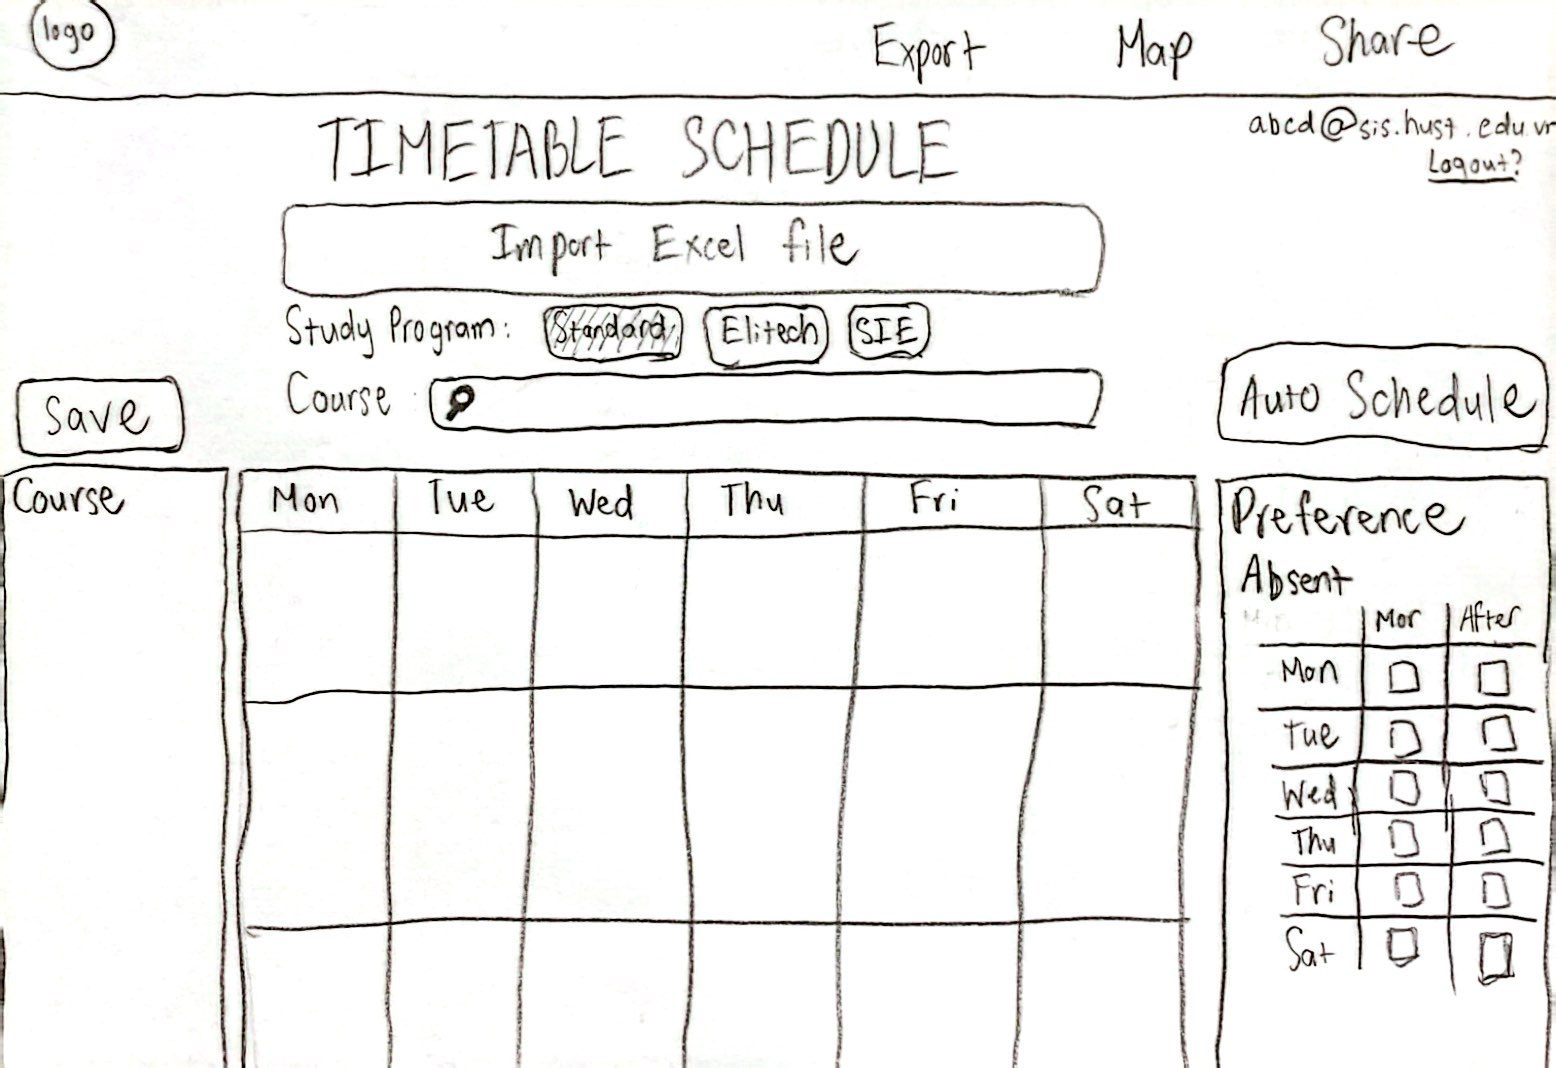 logo
Export Map Share
TIMETABLE SCHEDULE
abcd@sis.hust.edu.vn
Logout?
Import Excel file
Study Program: Standard Elitech SIE
Course
Save
Auto Schedule
Course
Mon Tue Wed Thu Fri Sat
Preference
Absent
Mor After
Mon
Tue
Wed
Thu
Fri
Sat